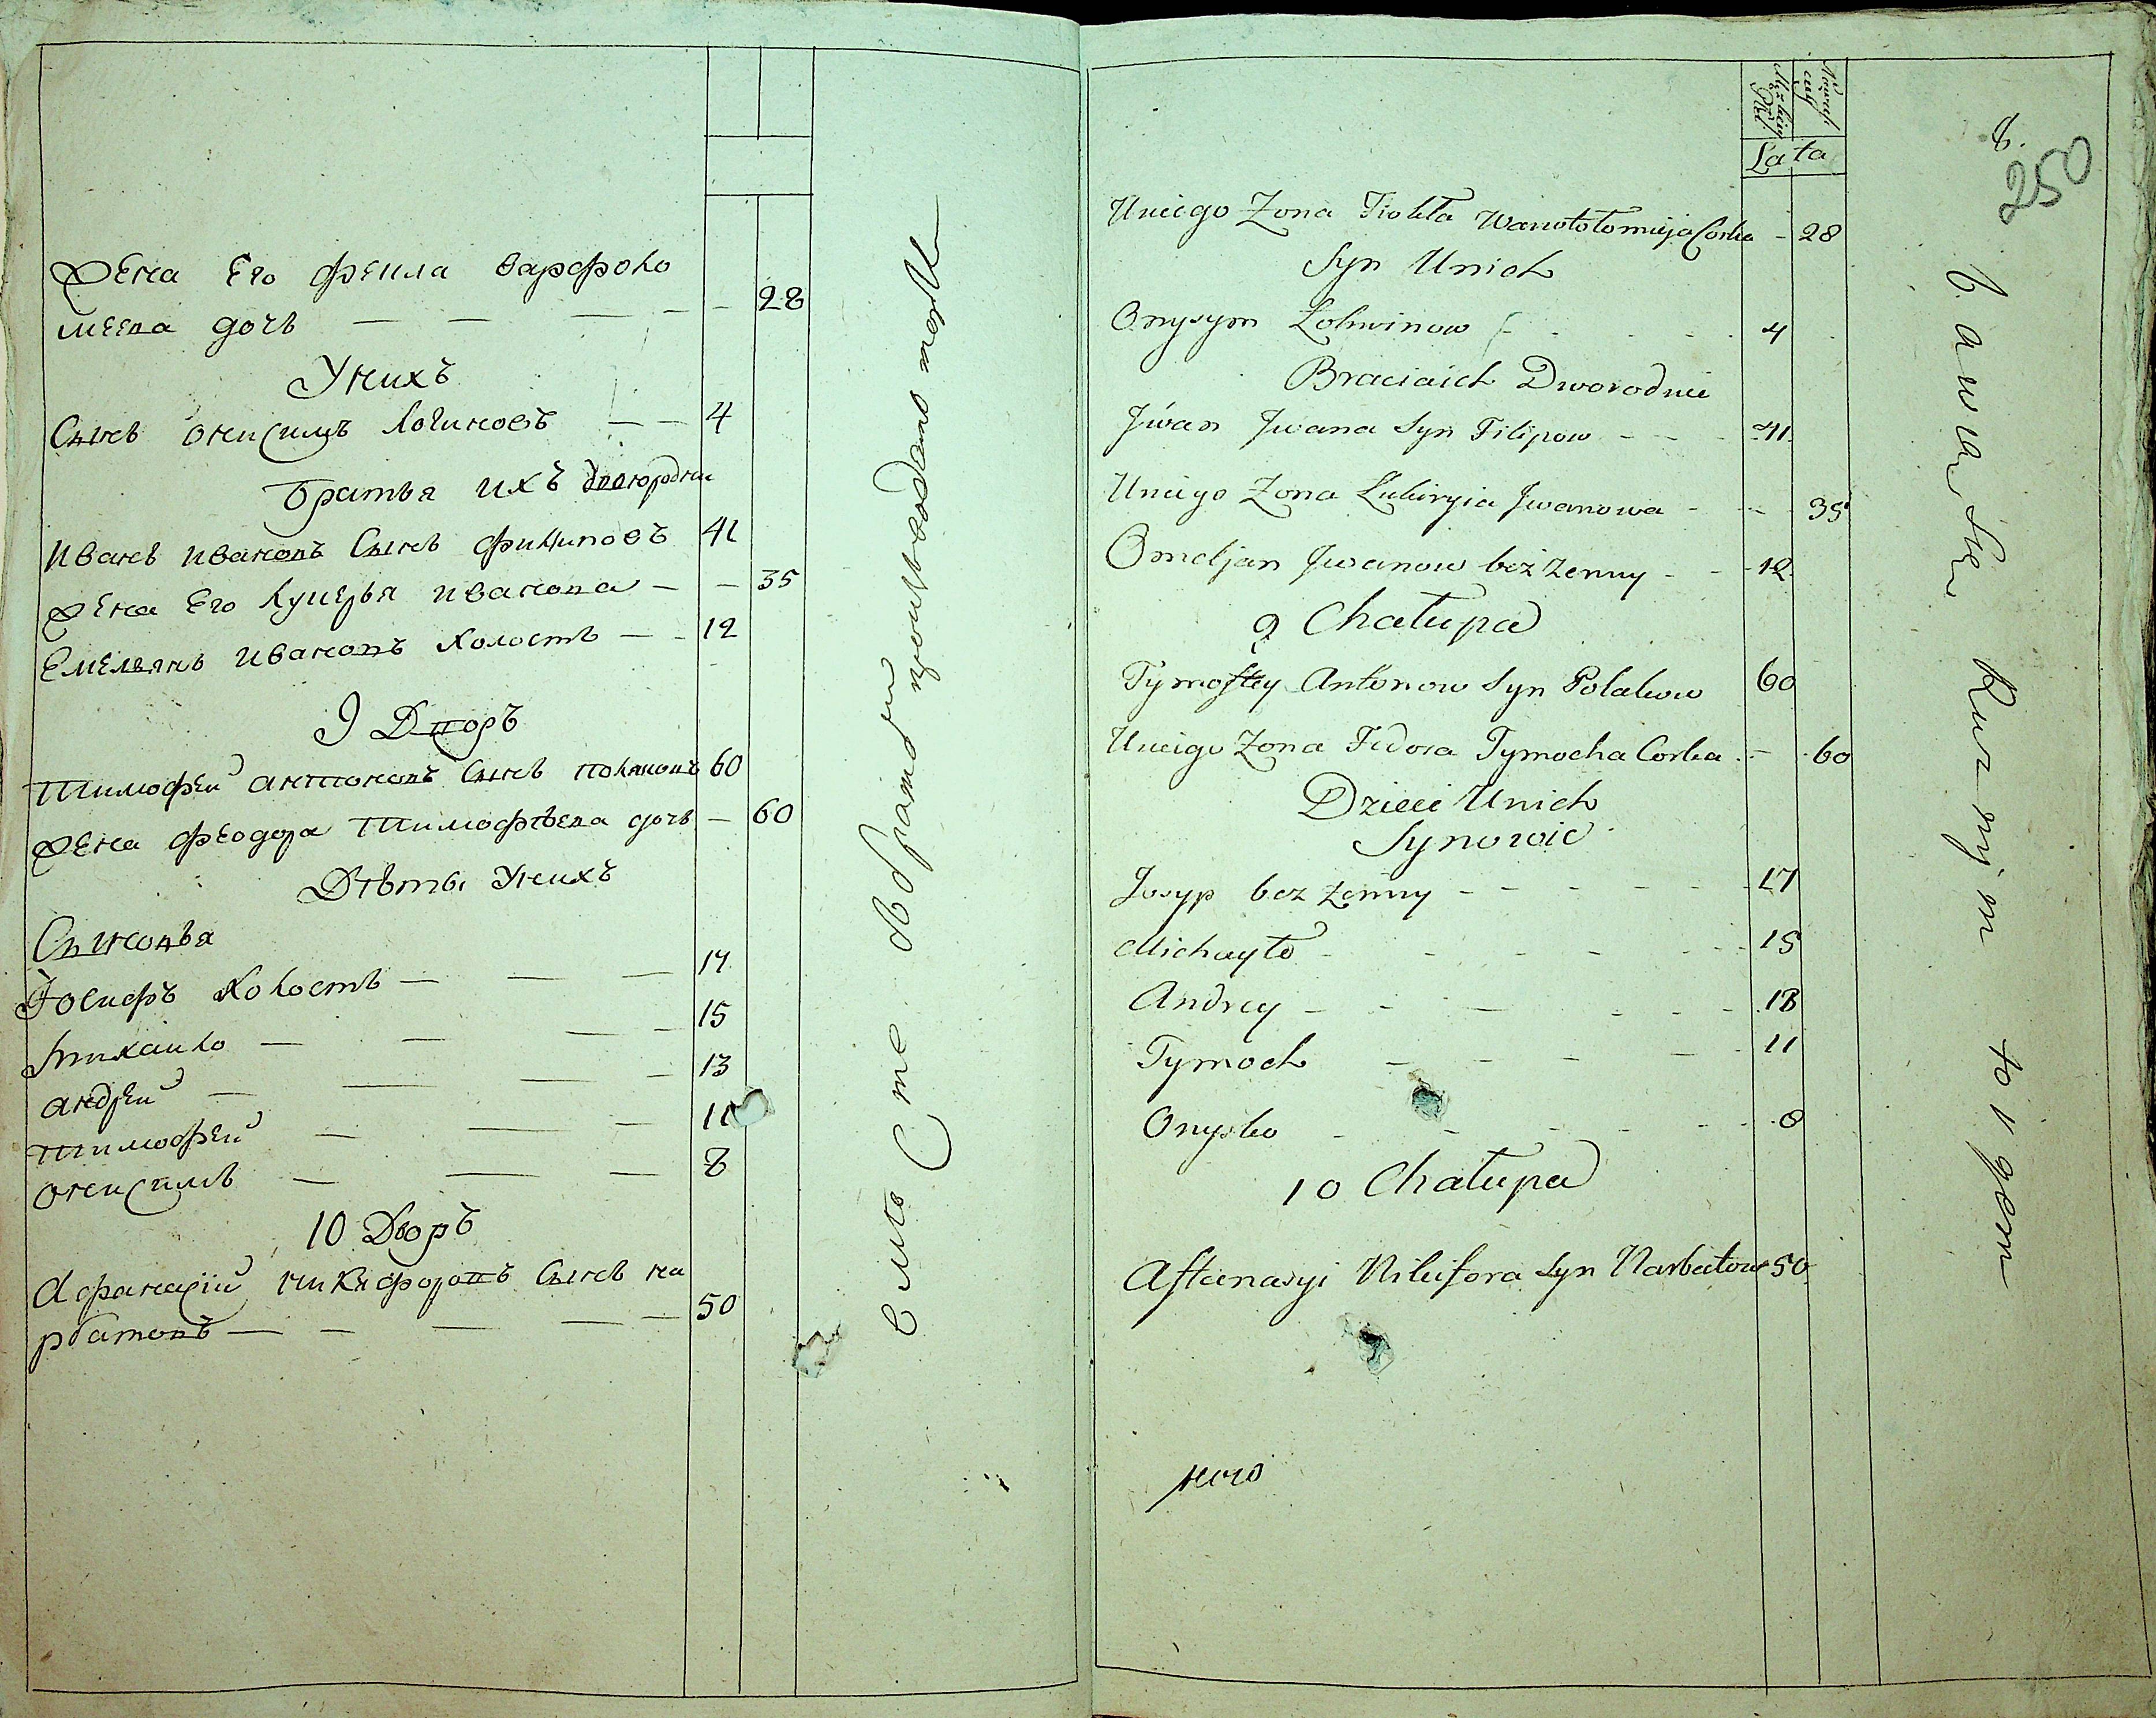 Жена Его Фекла варфоло
меева дочь — — — — 28
У нихъ
Сынъ Онисимъ Логиновъ — — 4
Братья ихъ двоюродни
Иванъ Ивановъ Сынъ Филиповъ 41
Жена Его Лукерья Иванова — — 35
Емельянъ Ивановъ холостъ — — 12
9 Дворъ
Тимофей Антоновъ Сынъ Поляковъ 60
Жена Феодора Тимофѣева дочь — 60
Дѣты У нихъ
Сыновья
Іосифъ холостъ — — — 17
Михайло — — — — 15
Андрей — — — — 13
Тимофей — — — 11
Онисимъ — — — 8
10 Дворъ
Афанасій Никифоровъ Сынъ На
рбатовъ — — — — — 50
Męzkiey Płci
Lata
Uniego Zona Fiokła Warwołomieja Corka - 28
Syn Unich
Onysym Łohwinow - - - - 4
Braciaich Dworodnie
Jwan Jwana Syn Filipow - - - 41
Uniego Zona Łukiryia Jwanowa - - - 35
Omeljan Jwanow beż żenny - - - 12
9 Chałupa
Tymoftey Antonow Syn Polakow 60
Uniego Zona Fedora Tymocha Corka - - 60
Dzieci Unich
Synowie
Josyp bez żenny - - - - - 17
Michayło - - - - - 15
Andrey - - - - - - 13
Tymoch - - - - - 11
Onysko - - - - - - 8
10 Chałupa
Aftanasyi Nikifora Syn Narbutow 50
8.
250